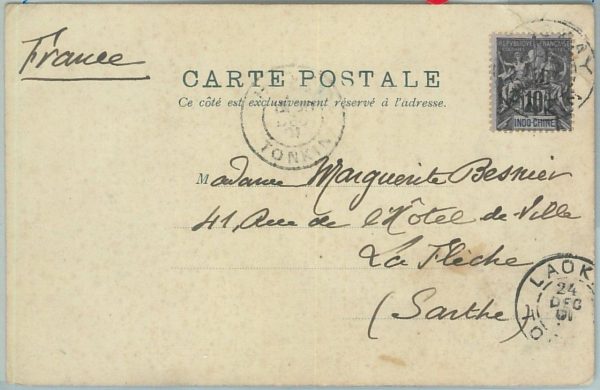 France
RÉPUBLIQUE FRANÇAISE
10
INDO-CHINE
CARTE POSTALE
Ce côté est exclusivement réservé à l'adresse.
TONKIN
Madame Marguerite Besnier
41, Rue de l'Hôtel de Ville
La Flèche
(Sarthe)
LAOK
24
DEC
01